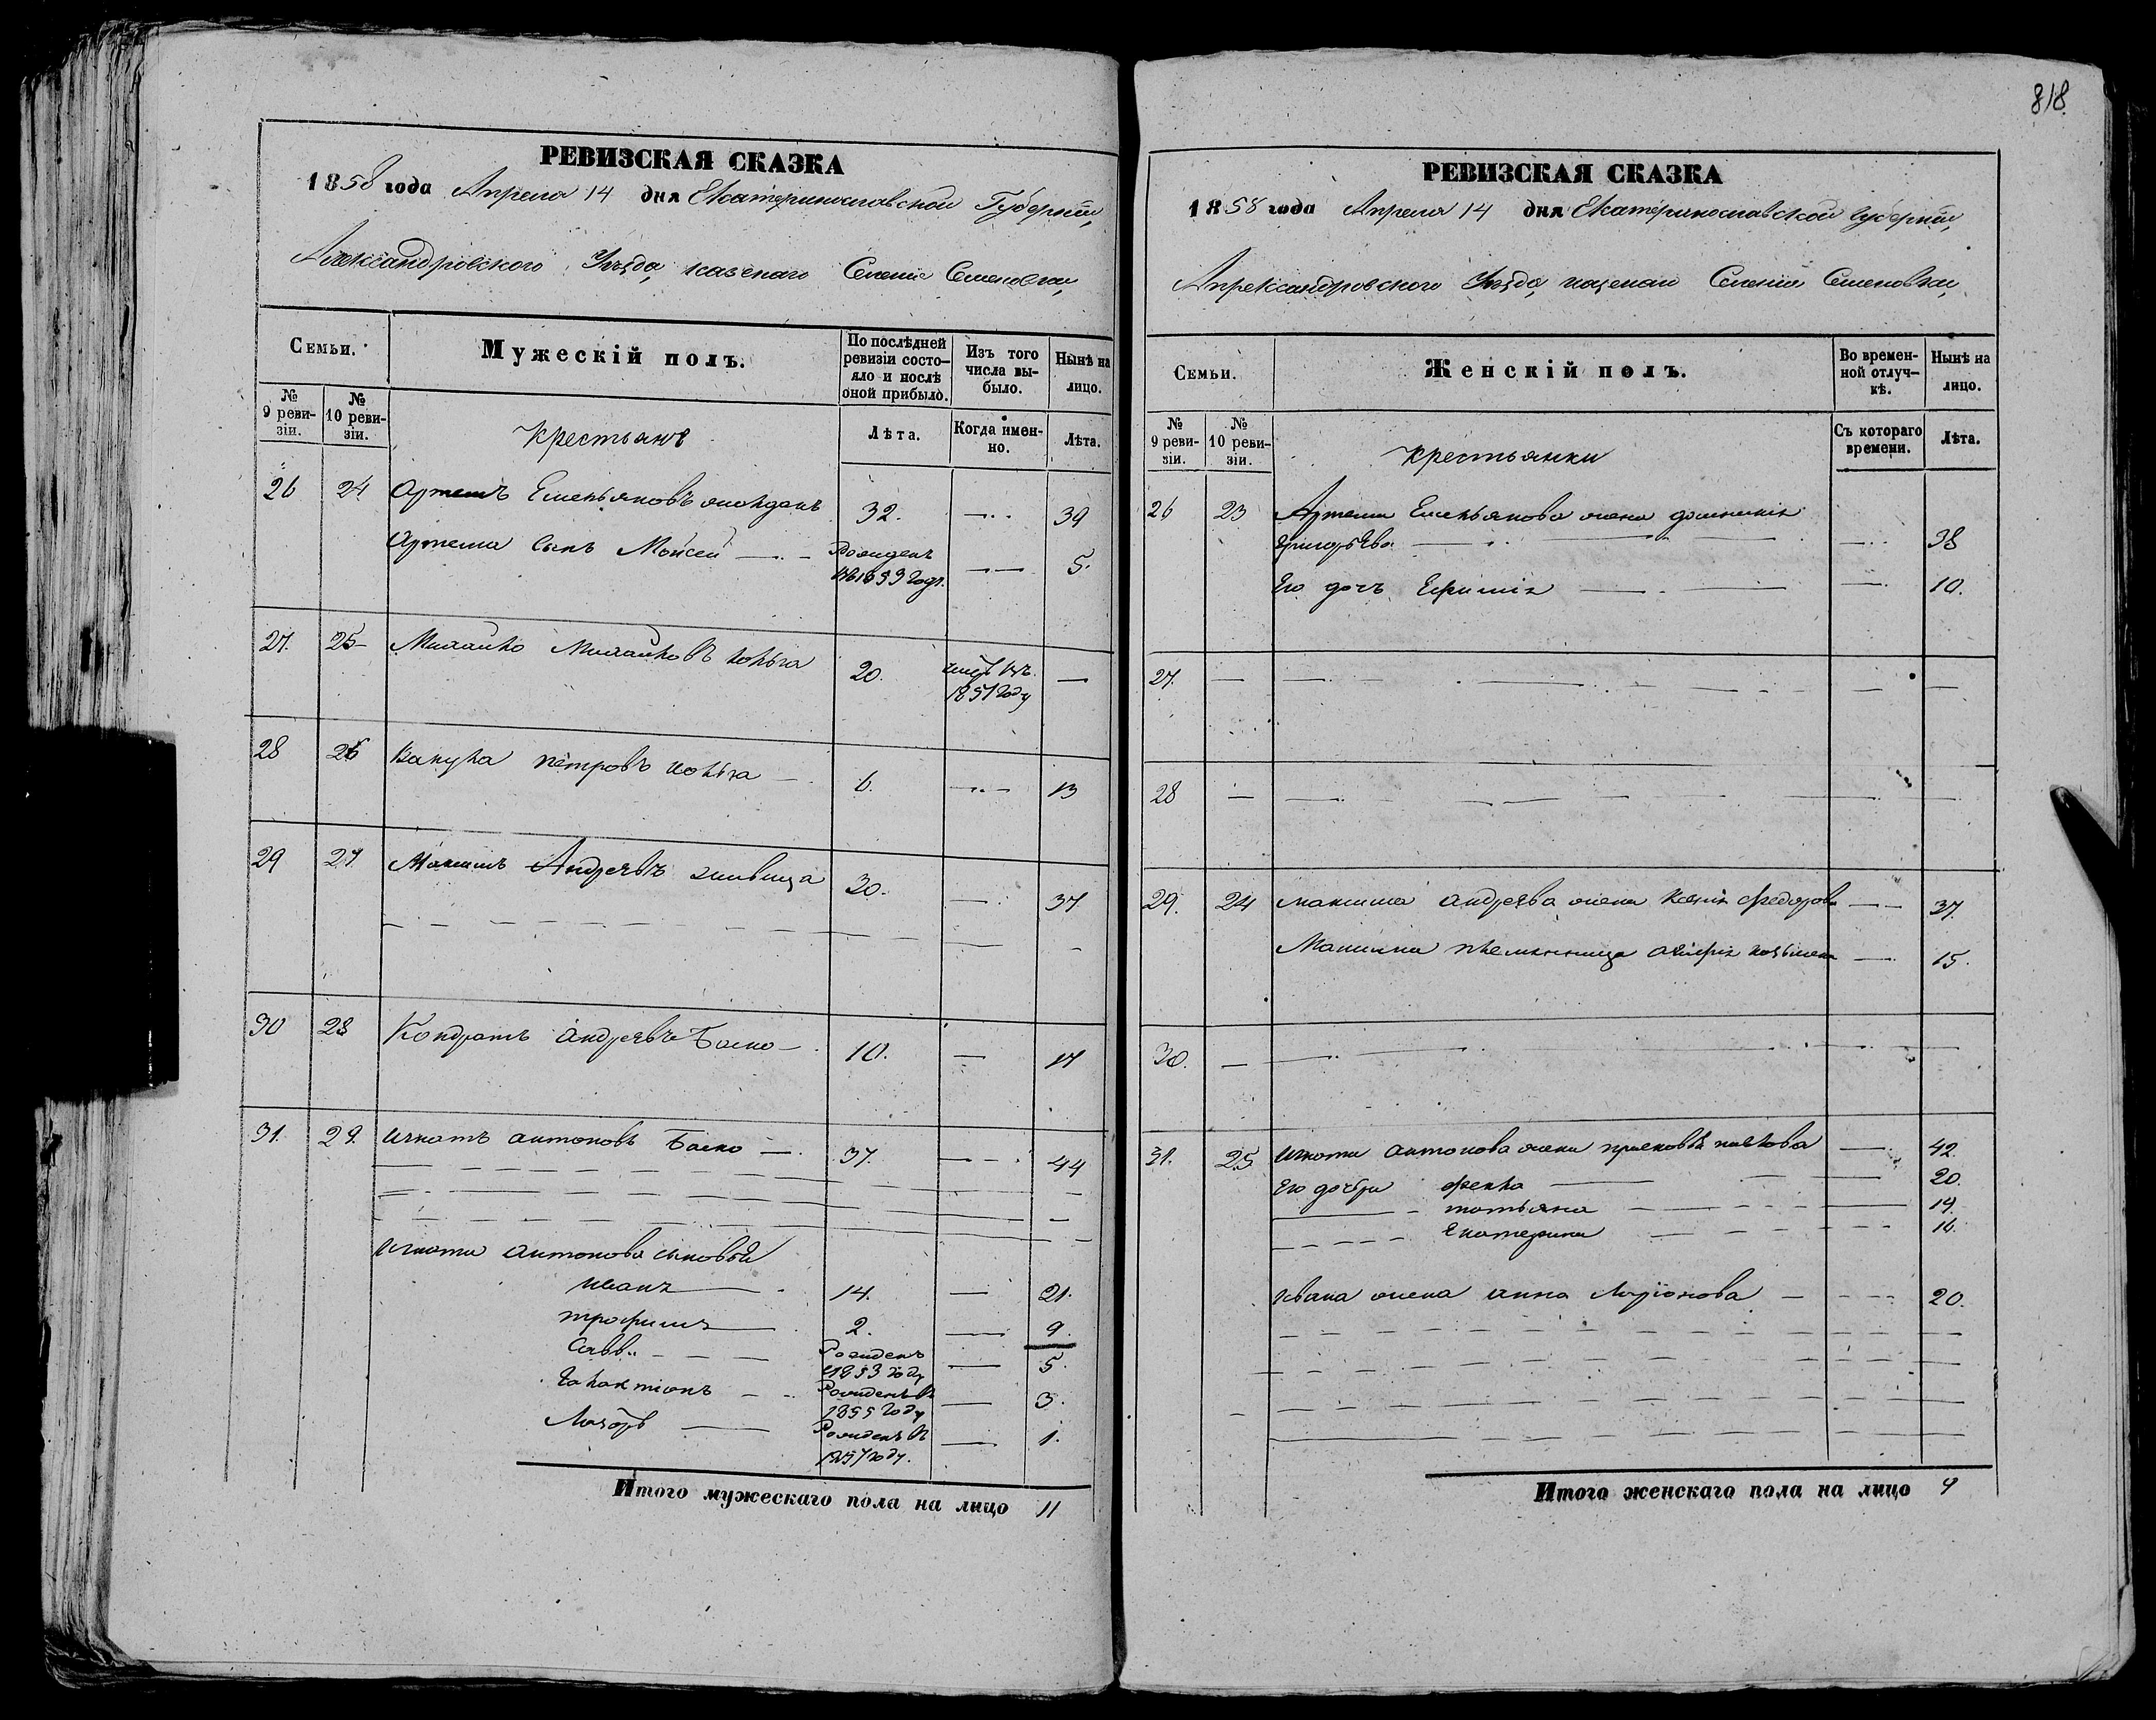 818.
РЕВИЗСКАЯ СКАЗКА
1858 года Апреля 14 дня Екатеринославской Губернии,
Александровского Уѣзда, казенаго Селения Семеновки,
Семьи.
Мужескій полъ.
По послѣдней ревизіи состо-
яло и послѣ оной прибыло.
Изъ того числа вы-
было.
Нынѣ на лицо.
№ 9 реви-
зіи.
№ 10 реви-
зіи.
Крестьяне
Лѣта.
Когда имен-
но.
Лѣта.
26 24 Артемъ Емельяновъ 32. — 39
Артема сынъ Мойсей — Рожденъ въ 1853 годе. — 5.
27. 25 Михайло Михайловъ 20. 1851 году —
28 26 Вакула петровъ — 6. — 13
29 27. Максимъ Андреевъ 30. — 37
30 28 Кондратъ андреевъ Баско — 10. — 17
31. 29. игнатъ антоновъ Баско — 37. — 44
игната антонова сыновья
иванъ — 14. — 21.
трофимъ — 2. — 9.
Савва — Рожденъ в 1853 году — 5.
Галактионъ — Рожденъ в 1855 году — 3.
Лазорь — Рожденъ в 1857 году. — 1.
Итого мужескаго пола на лицо 11
РЕВИЗСКАЯ СКАЗКА
1858 года Апреля 14 дня Екатеринославской Губернии,
Александровского Уѣзда, казенаго Селения Семеновки,
Семьи.
Женскій полъ.
Во времен-
ной отлуч-
кѣ.
Нынѣ на лицо.
№ 9 реви-
зіи.
№ 10 реви-
зіи.
крестьянки
Съ котораго времени.
Лѣта.
26 23 Артема Емельянова жена домникия
григорьева — — 38
Его дочь Ефимия — — 10.
27. —
28 —
29. 24 максима андреева жена Ксения федорова — 37.
Максима племянница — 15.
30. —
31. 25 игната антонова жена прасковья павлова — 42
Его дочери фекла — 20.
татьяна — 19.
Екатерина — 16.
ивана жена анна Ларионова — 20.
Итого женскаго пола на лицо 9